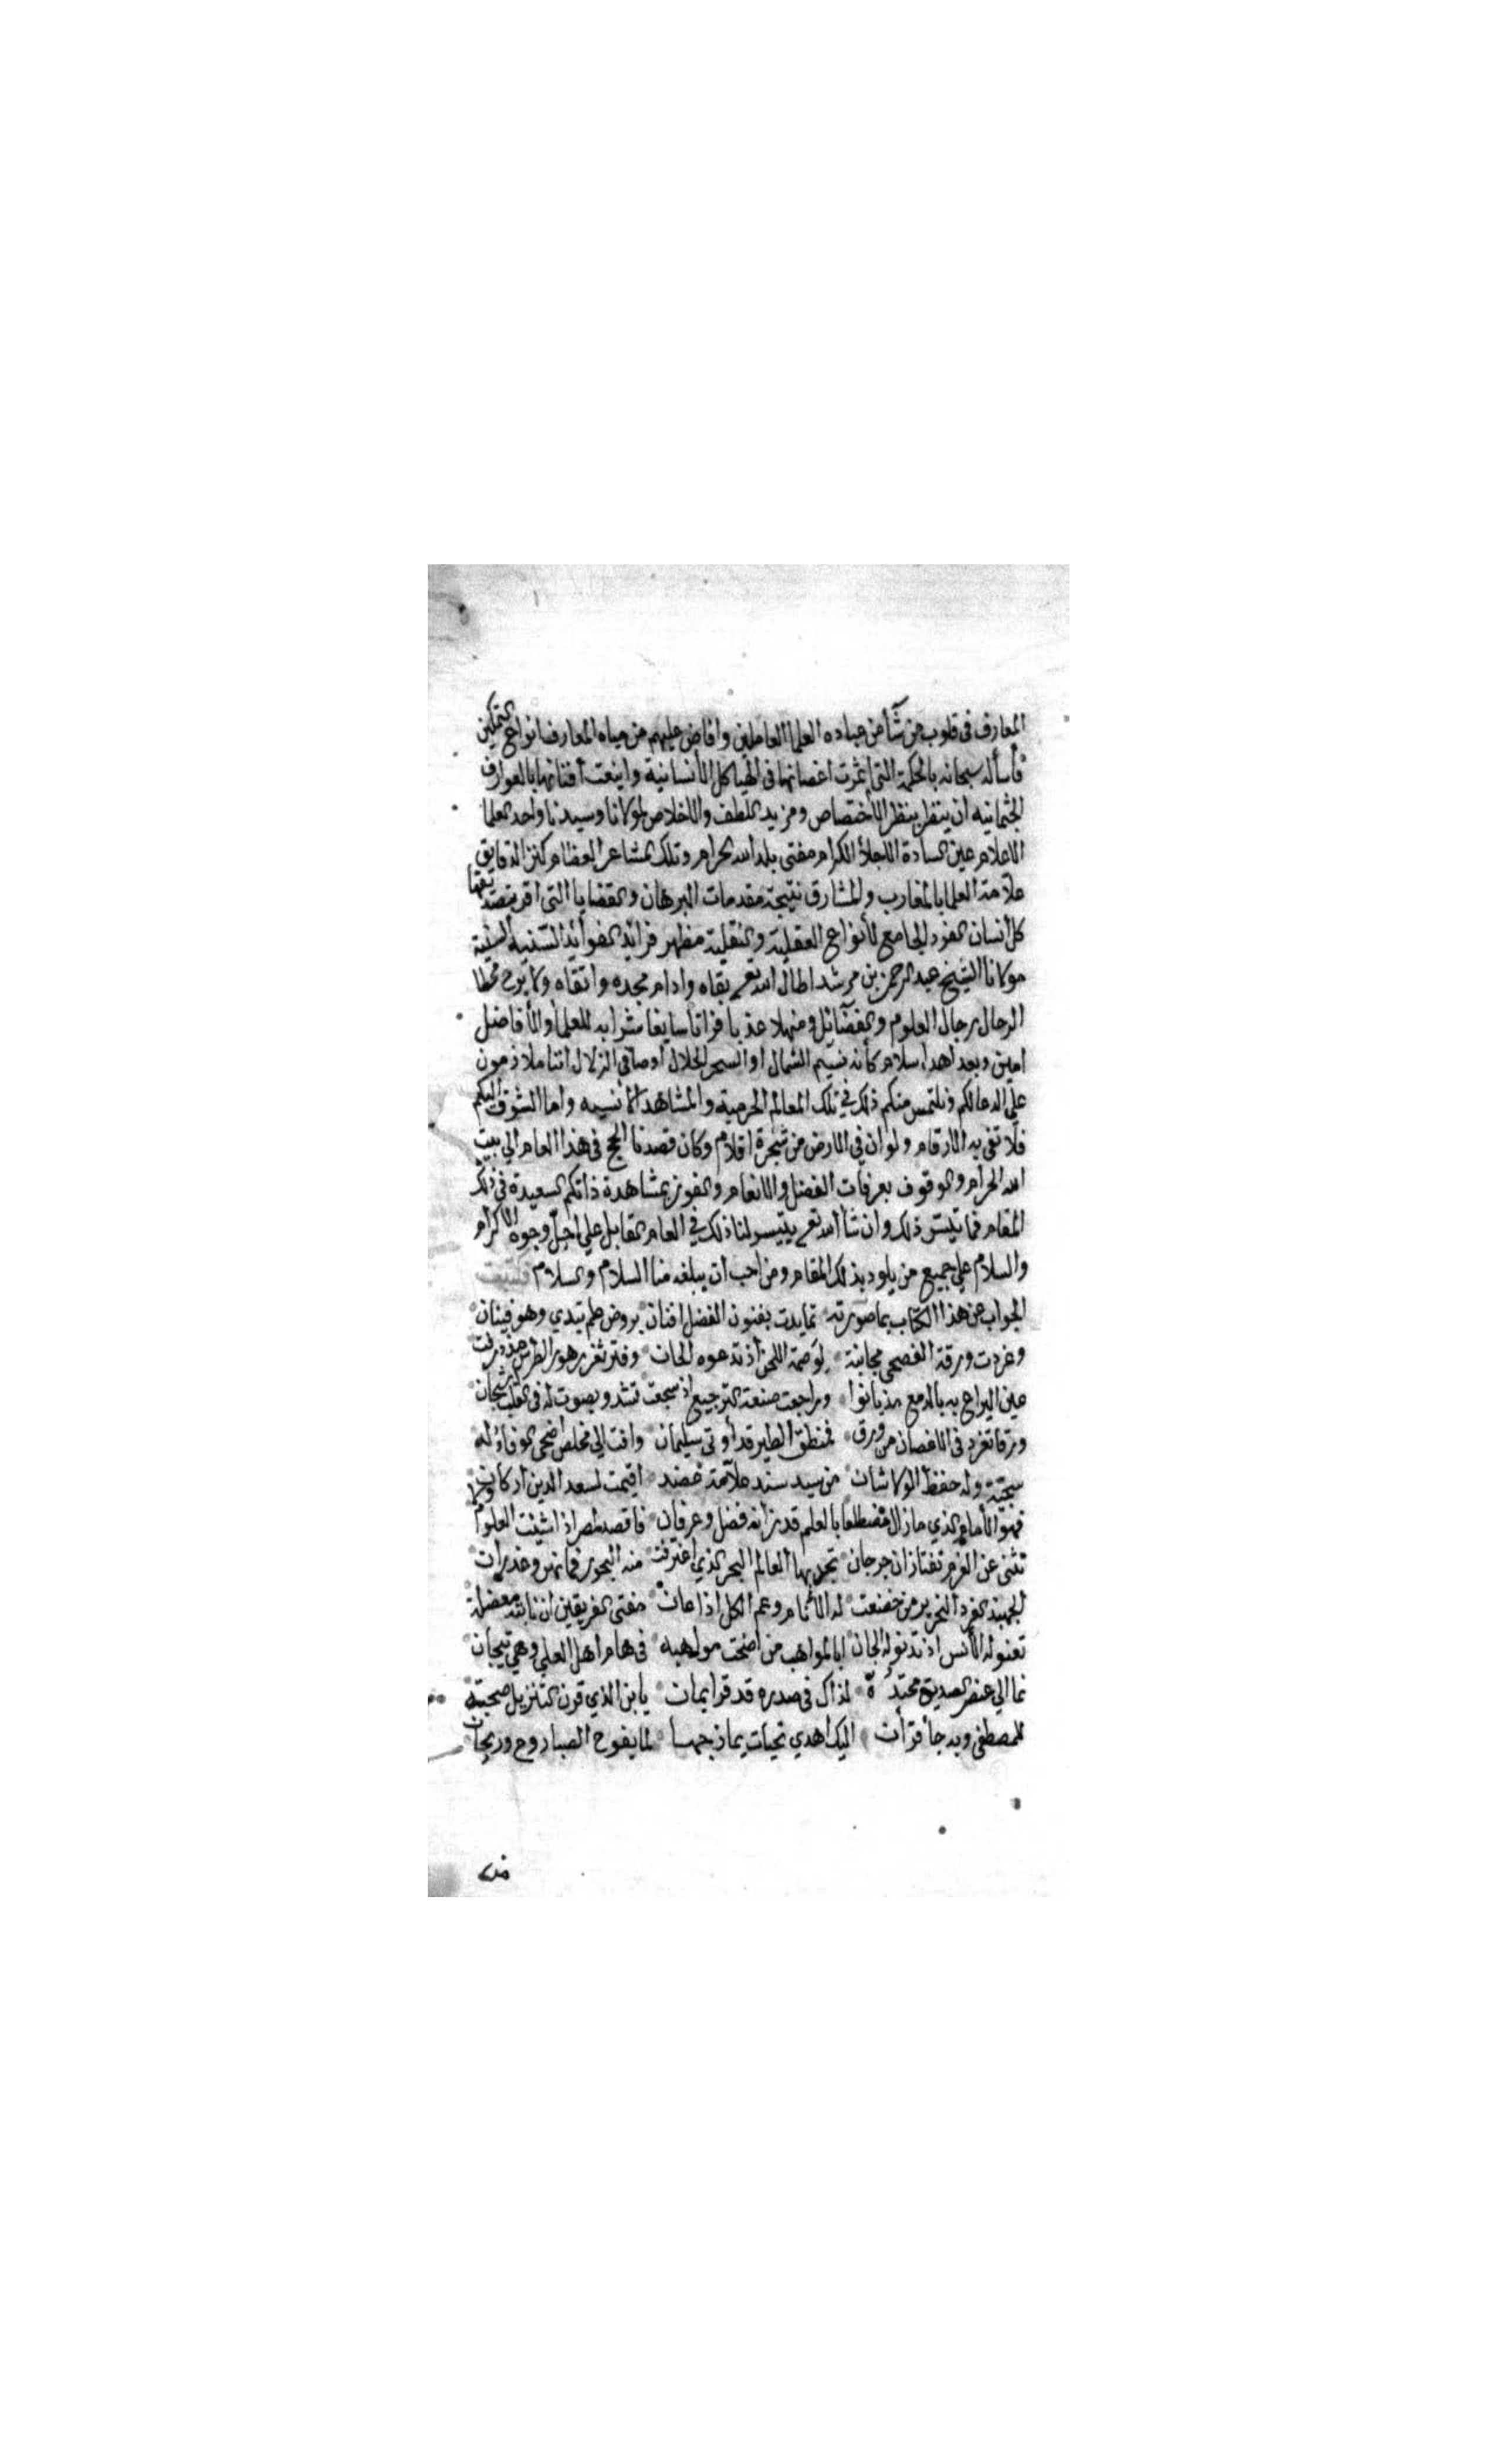 المعارف فى قلوب من شآ من عباده العلما العاملين وافاض عليهم من مياه المعارف انواع التمكين
فأسأله سبحانه بالحكمة التى اثمرت اغصانها فى الهياكل الأنسانية واينعت أفنانها بالعوارف
الجثمانيه ان ينظر بنظر الأختصاص ومزيد اللطف والاخلاص لمولانا وسيدنا واحد العلما
الاعلام عين السادة الاجلأ الكرام مفتى بلد الله الحرام وتلك المشاعر العظام كنز الدقايق
علامة العلما بالمغارب والمشارق نتيجة مقدمات البرهان والقضايا التى اقر بتصديقها
كل أنسان الفرد الجامع لأنواع العقلية والنقلية مظهر فرائد الفوائد السنيه السنية
مولانا الشيخ عبد الرحمن بن مرشد اطال الله تعـ بقاه وادام مجده وارتقاه ولا برح محطا
الرحال رجال العلوم والفضآئل ومنهلا عذبا فراتا سايغا شرابه للعلمأ والأفاضل
امين وبعد اهدا سلام كأنه نسيم الشمال او السحر الحلال أوصافى الزلال اننا ملازمون
على الدعا لكم ونلتمس منكم ذلك في تلك المعالم الحرمية والمشاهد الأنسيه واما الشوق اليكم
فلا تفى به الارقام ولو ان في الارض من شجرة اقلام وكان قصدنا الحج فى هذا العام الي بيت
الله الحرام والوقوف بعرفات الفضل والانعام والفوز بمشاهدة ذاتكم السعيدة فى ذلك
المقام فما تيسر ذلك وان شا الله تعـ يتيسر لنا ذلك في العام القابل علي اجلّ وجوه الاكرام
والسلام علي جميع من يلوذ بذلك المقام ومن احب أن يبلغه منا السلام والسلام فكتبت
الجواب عن هذا الكتاب بما صورته تمايدت بفنون الفضل افنان بروض علم تبدي وهو فينان
وغردت ورقة الفصحى مجانبة لوصمة اللحن اذ تدعوه الحان وفتر ثغر زهور الطرس مذ ذرفت
عين اليراع به بالدمع مذ بانوا وراجعت صنعة الترجيع اذ سجعت تشدو بصوت له فى القلب اشجان
ورقا تغرد فى الاغصان من ورق فمنطق الطير قد أوتى سليمان وافت الي مخلص اضحى الوفاء له
سجية وله حفظ الولا شان من سيد سند علآمة عضد اقيمت لسعد الدين اركان
فهو الأمام الذي مازال مضطلعا بالعلم قد زانه فضل وعرفان فاقصد لمصر اذا شيت العلوم ولا
تثنى عن العزم تفتازان جرجان تجد بها العالم البحر الذي اغترفت منه البحور فما نهر وغدران
الجهبذ الفرد النحرير من خضعت له الأنام وعم الكل اذعان مفتى الفريقين ان نابته معضلة
تعنو له الأنس اذ تدنو له الجان ابا المواهب من اضحت مواهبه فى هام اهل العلي وهي تيجان
نما الي عنصر الصديق محتدة لذاك فى صدره قد قر ايمان يا ابن الذي قرن التنزيل صحبته
للمصطفى وبه جأ قرأن اليك اهدي تحيات يمازجها لما يفوح الصبا روح وريحان